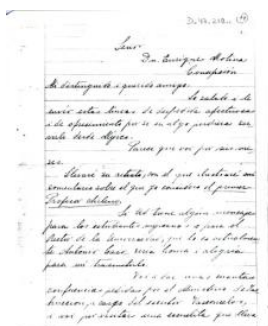 Señor
Dn. Enrique Molina
Concepción
Mi distinguido i querido amigo:
Lo saludo i le
envío estas líneas de despedida afectuosa
i de ofrecimiento por si en algo pudiera ser
virle desde Méjico.
Parece que voi por seis me
ses.
Llevaré su retrato, con el que ilustraré mi
comentario sobre el que yo considero el primer
Profesor chileno.
Si Ud tiene algún mensaje
para los estudiantes mejicanos o para el
Rector de la Universidad, que lo es actualmente
Antonio Caso, sería honra i alegría
para mí trasmitirlo.
Voi a dar unas cuantas
conferencias pedidas por el Ministro de Ins
truccion, a cargo del escritor Vasconcelos,
i voi por visitar una escuelita que lleva